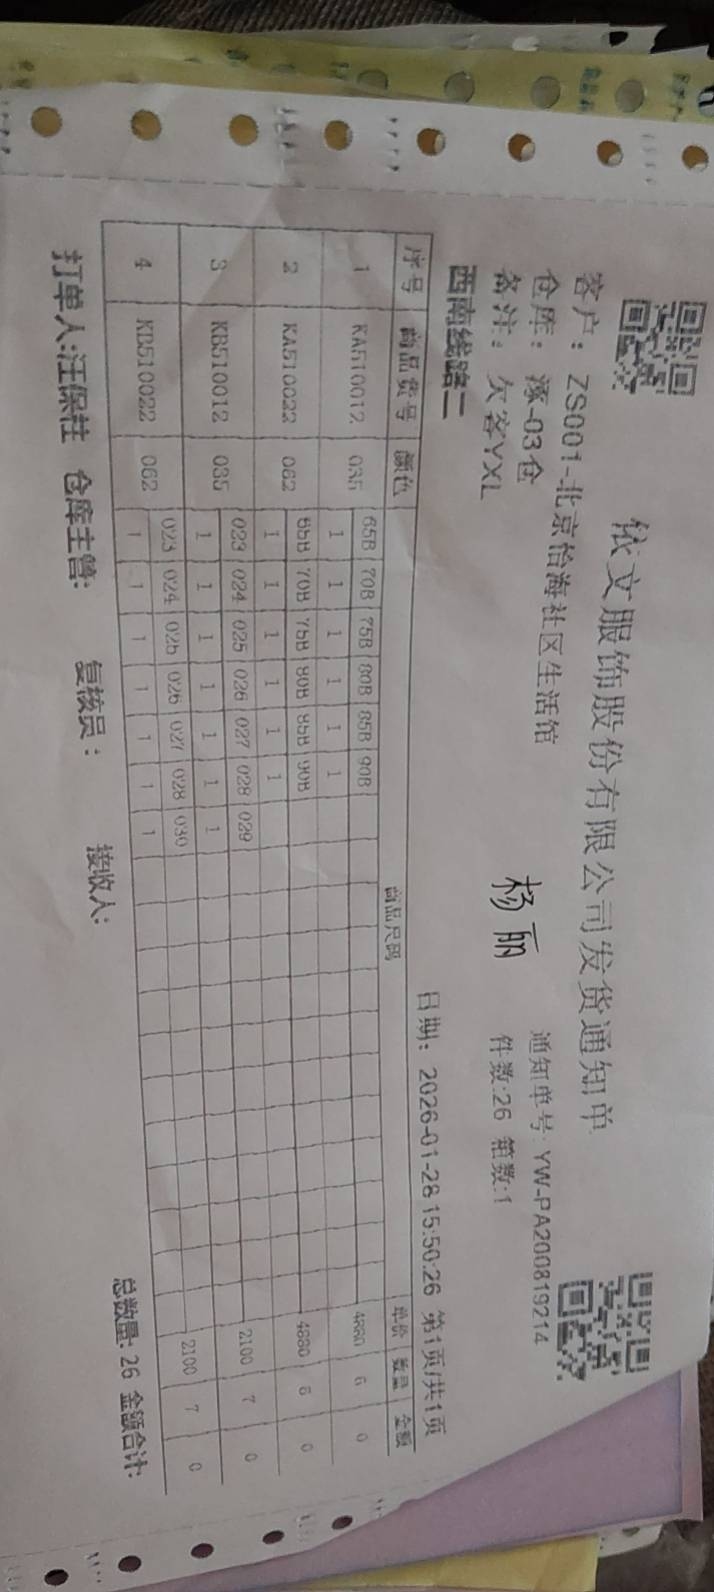 依文服饰股份有限公司发货通知单
客户: ZS001-北京怡海社区生活馆
通知单号: YW-PA200819214
仓库: 涿-03仓
杨丽
件数:26 箱数:1
备注: 欠客YXL
西南线路二
日期: 2026-01-28 15:50:26 第1页/共1页
序号 商品货号 颜色 商品尺码 单价 数量 金额
65B 70B 75B 80B 85B 90B
1 KA510012 035 1 1 1 1 1 1 4880 6 0
65B 70B 75B 80B 85B 90B
2 KA510022 062 1 1 1 1 1 1 4880 6 0
023 024 025 026 027 028 029
3 KB510012 035 1 1 1 1 1 1 1 2100 7 0
023 024 025 026 027 028 030
4 KB510022 062 1 1 1 1 1 1 1 2100 7 0
总数量: 26 金额合计:
打单人:汪保柱 仓库主管: 复核员: 接收人: